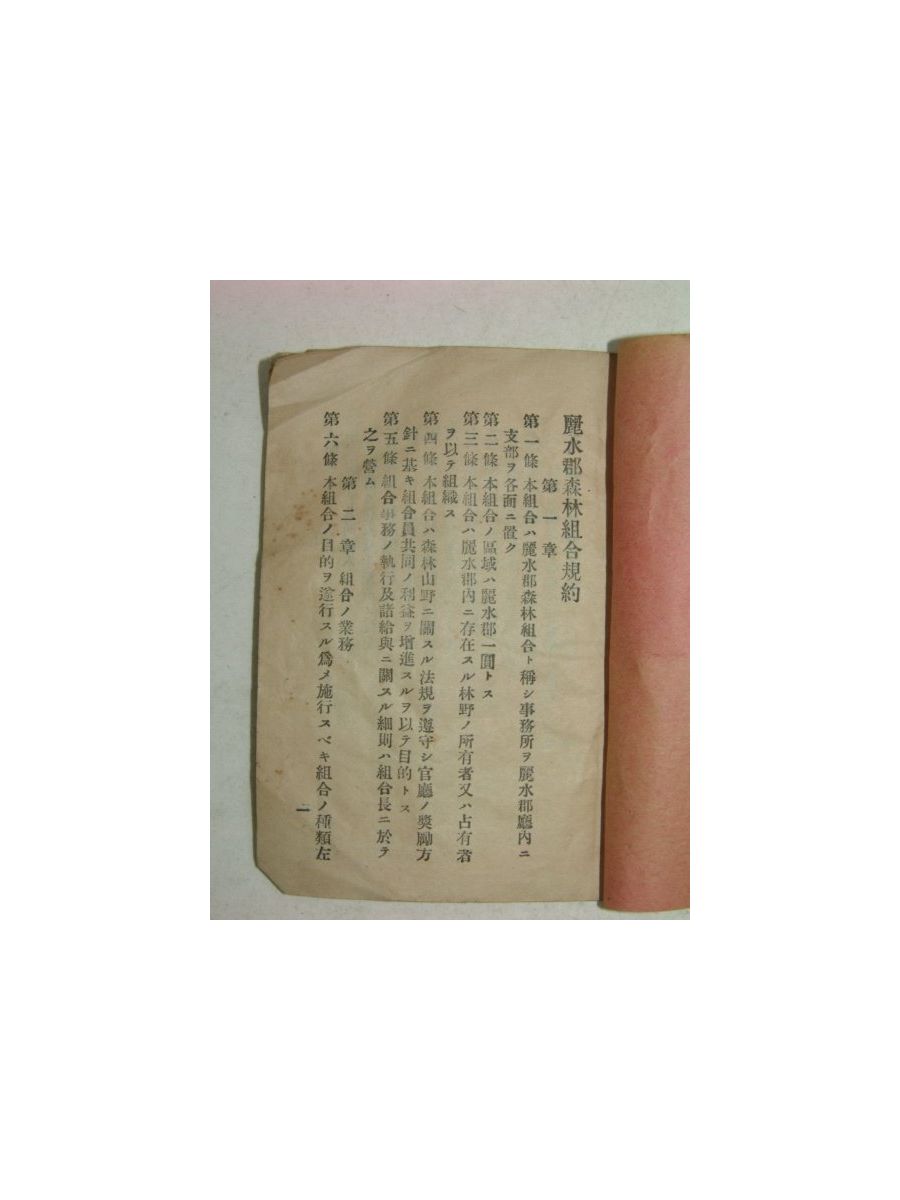 麗水郡森林組合規約
第一章
第一條 本組合ハ麗水郡森林組合ト稱シ事務所ヲ麗水郡廳內ニ
支部ヲ各面ニ置ク
第二條 本組合ノ區域ハ麗水郡一圓トス
第三條 本組合ハ麗水郡內ニ存在スル林野ノ所有者又ハ占有者
ヲ以テ組織ス
第四條 本組合ハ森林山野ニ關スル法規ヲ遵守シ官廳ノ獎勵方
針ニ基キ組合員共同ノ利益ヲ增進スルヲ以テ目的トス
第五條 組合事務ノ執行及諸給與ニ關スル細則ハ組合長ニ於テ
之ヲ營ム
第二章 組合ノ業務
第六條 本組合ノ目的ヲ遂行スル爲メ施行スベキ組合ノ種類左
一